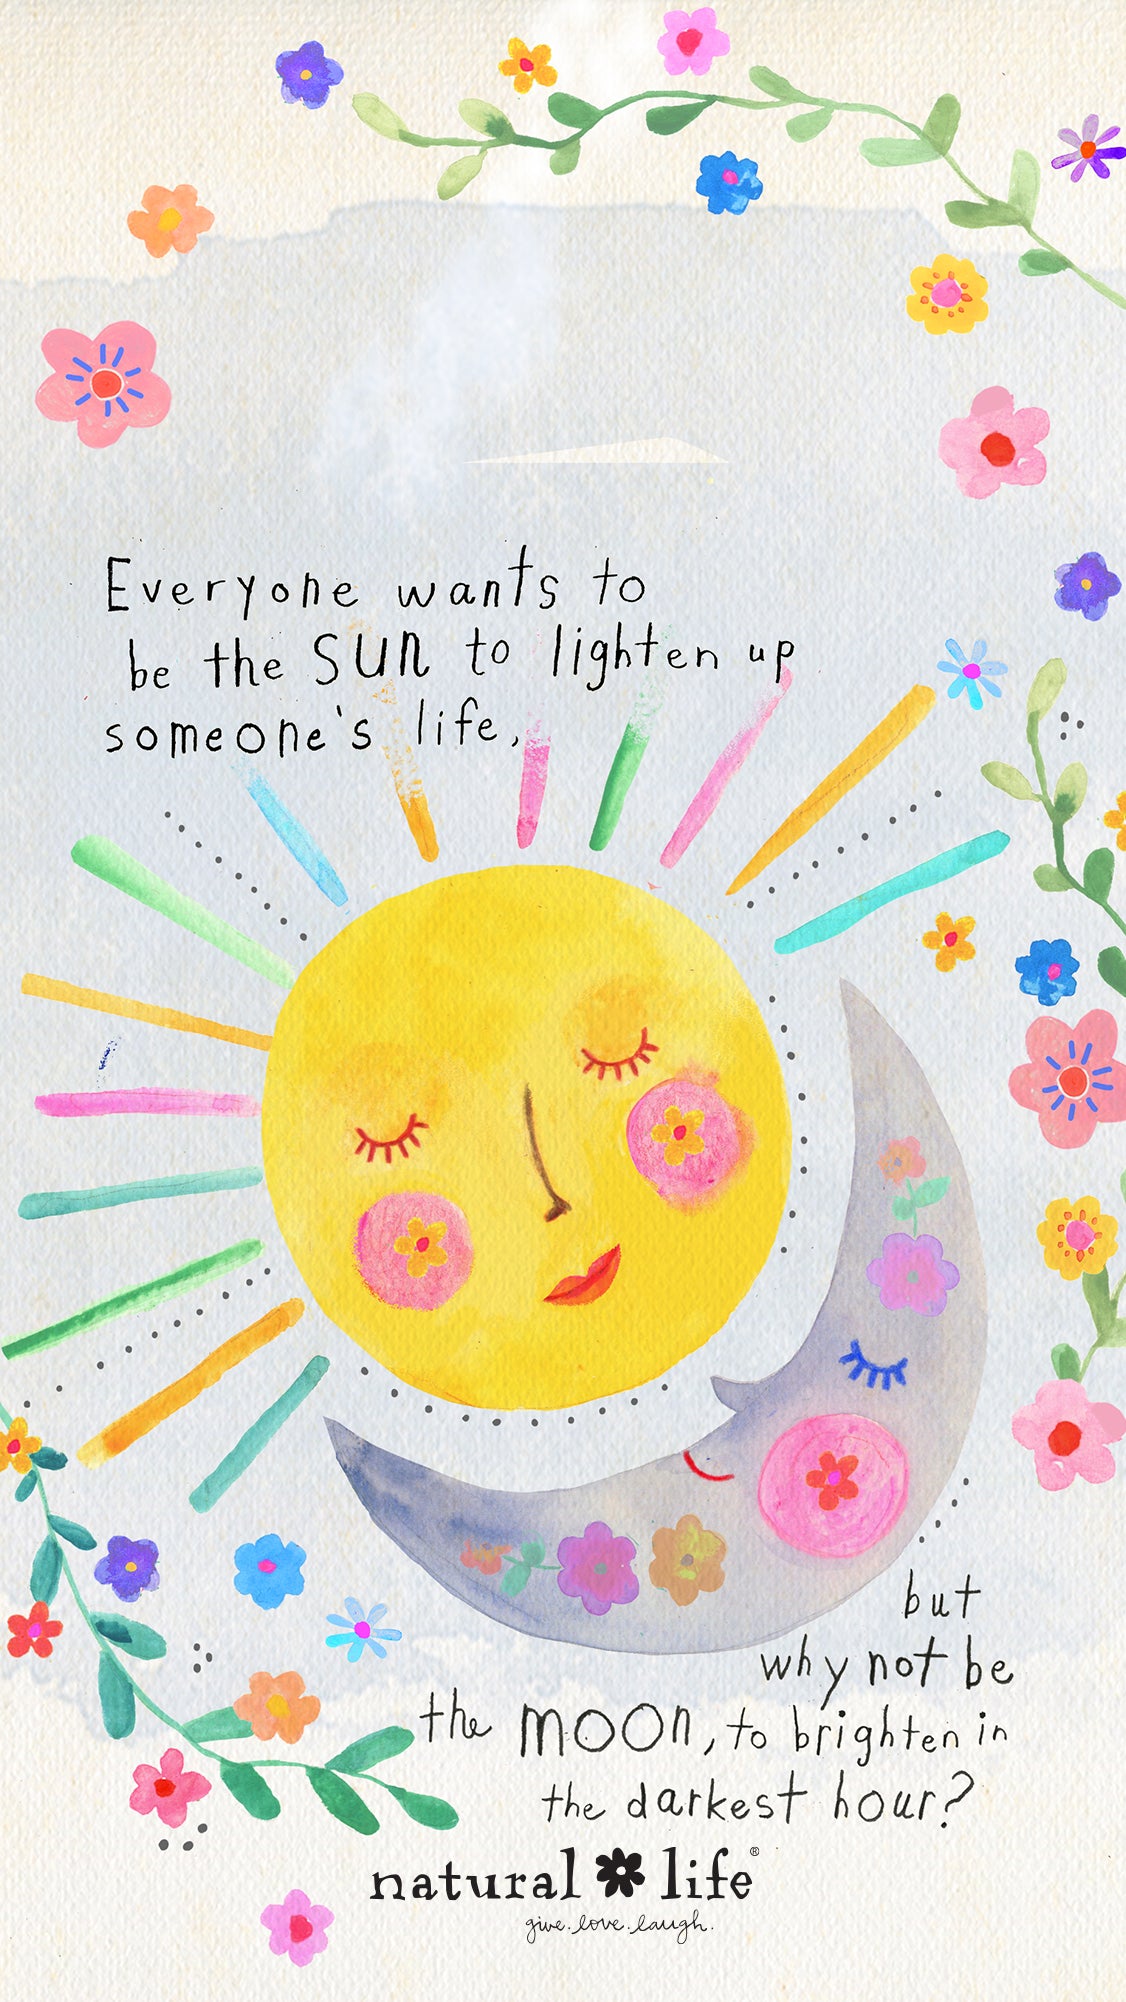 Everyone wants to
be the SUN to lighten up
someone's life,
but
why not be
the moon, to brighten in
the darkest hour?
natural life®
give.love.laugh.